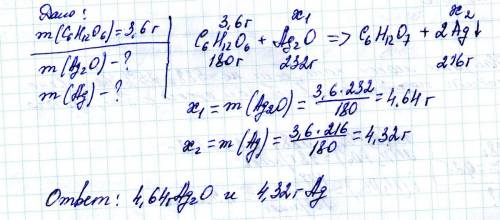 Дано:
m(C₆H₁₂O₆)=3,6г
m(Ag₂O) - ?
m(Ag) - ?
3,6г x₁ x₂
C₆H₁₂O₆ + Ag₂O => C₆H₁₂O₇ + 2Ag↓
180г 232г 216г
x₁ = m(Ag₂O) = 3,6·232/180 = 4.64г
x₂ = m(Ag) = 3,6·216/180 = 4,32г
Ответ: 4,64г Ag₂O и 4,32г Ag